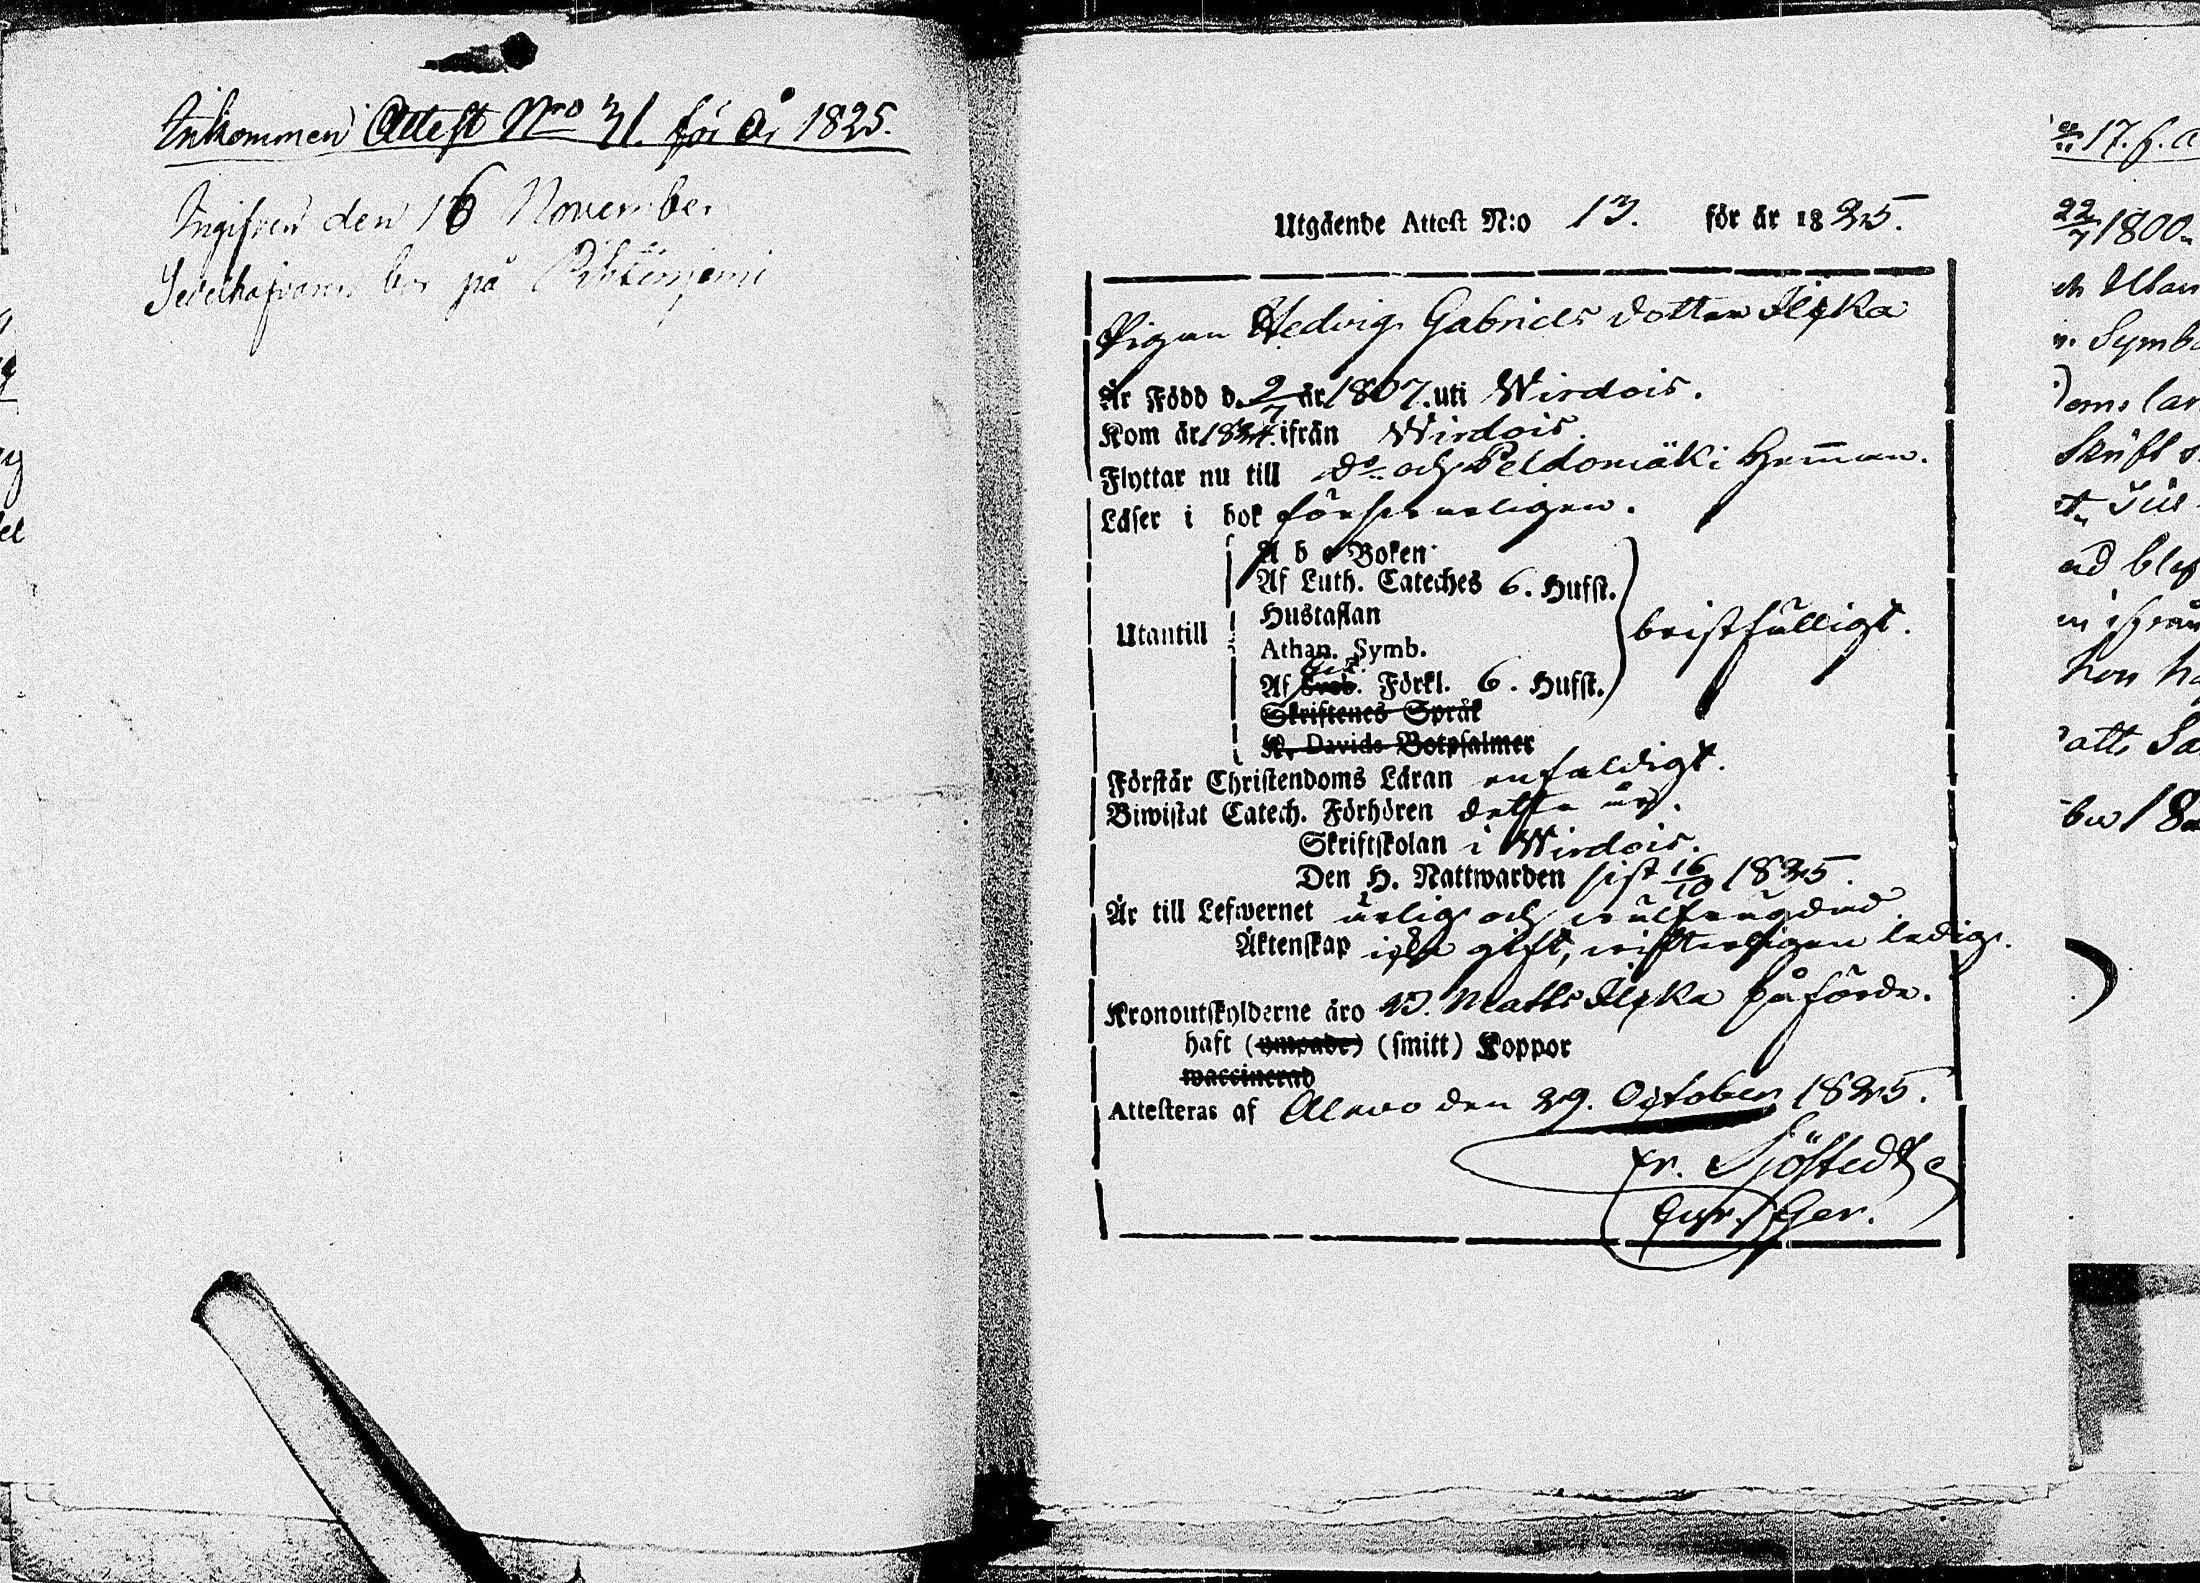 Inkommen Attest Nro 31. för År 1825.
Ingifven den 16 November
Sedelhafvaren bor på Pihtisniemi
Utgående Attest N:o 13. för år 1825.
Pigan Hedvig Gabriels dotter Ilska
Är Född d. 2/7 år 1807. uti Wirdois.
Kom år 1824. ifrån Wirdois.
Flyttar nu till do och Peldomäki Hemman.
Läser i bok försvarligen.
A b c Boken
Af Luth. Cateches 6. Hufst.
Hustaflan
Utantill
bristfälligt.
Athan. Symb.
Af Sveb. Förkl. 6. Hufst.
Skriftenes Språk
K. Davids Botpsalmer
Förstår Christendoms Läran enfaldigt.
Biwistat Catech. Förhören detta år.
Skriftskolan i Wirdois.
Den H. Nattwarden sist 16/10 1825.
Är till Lefwernet ärlig och välfrägdad.
Äktenskap icke gift, visterligen ledig.
Kronoutskylderne äro Matts Ilska påförde.
haft (ympade) (smitt) Koppor
waccinerad
Attesteras af Alavo den 29. October 1825.
Fr. Sjöstedt
17. f.
22/7 1800.